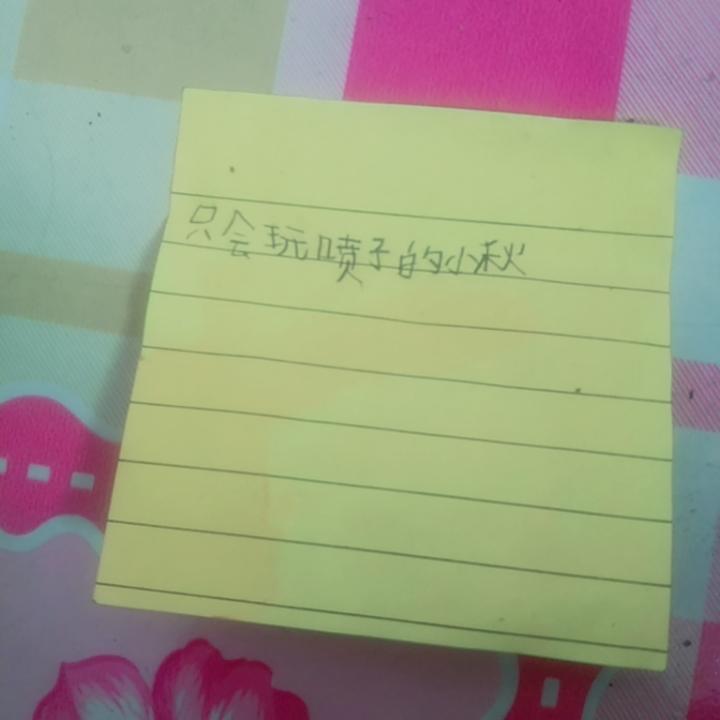 只会玩喷子的小秋